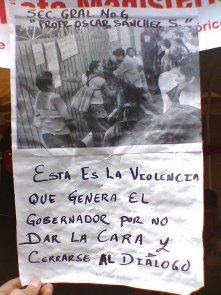 SEC. GRAL No. 6
"PROFR. OSCAR SANCHEZ S."
ESTA ES LA VIOLENCIA
QUE GENERA EL
GOBERNADOR POR NO
DAR LA CARA Y
CERRARSE AL DIÁLOGO